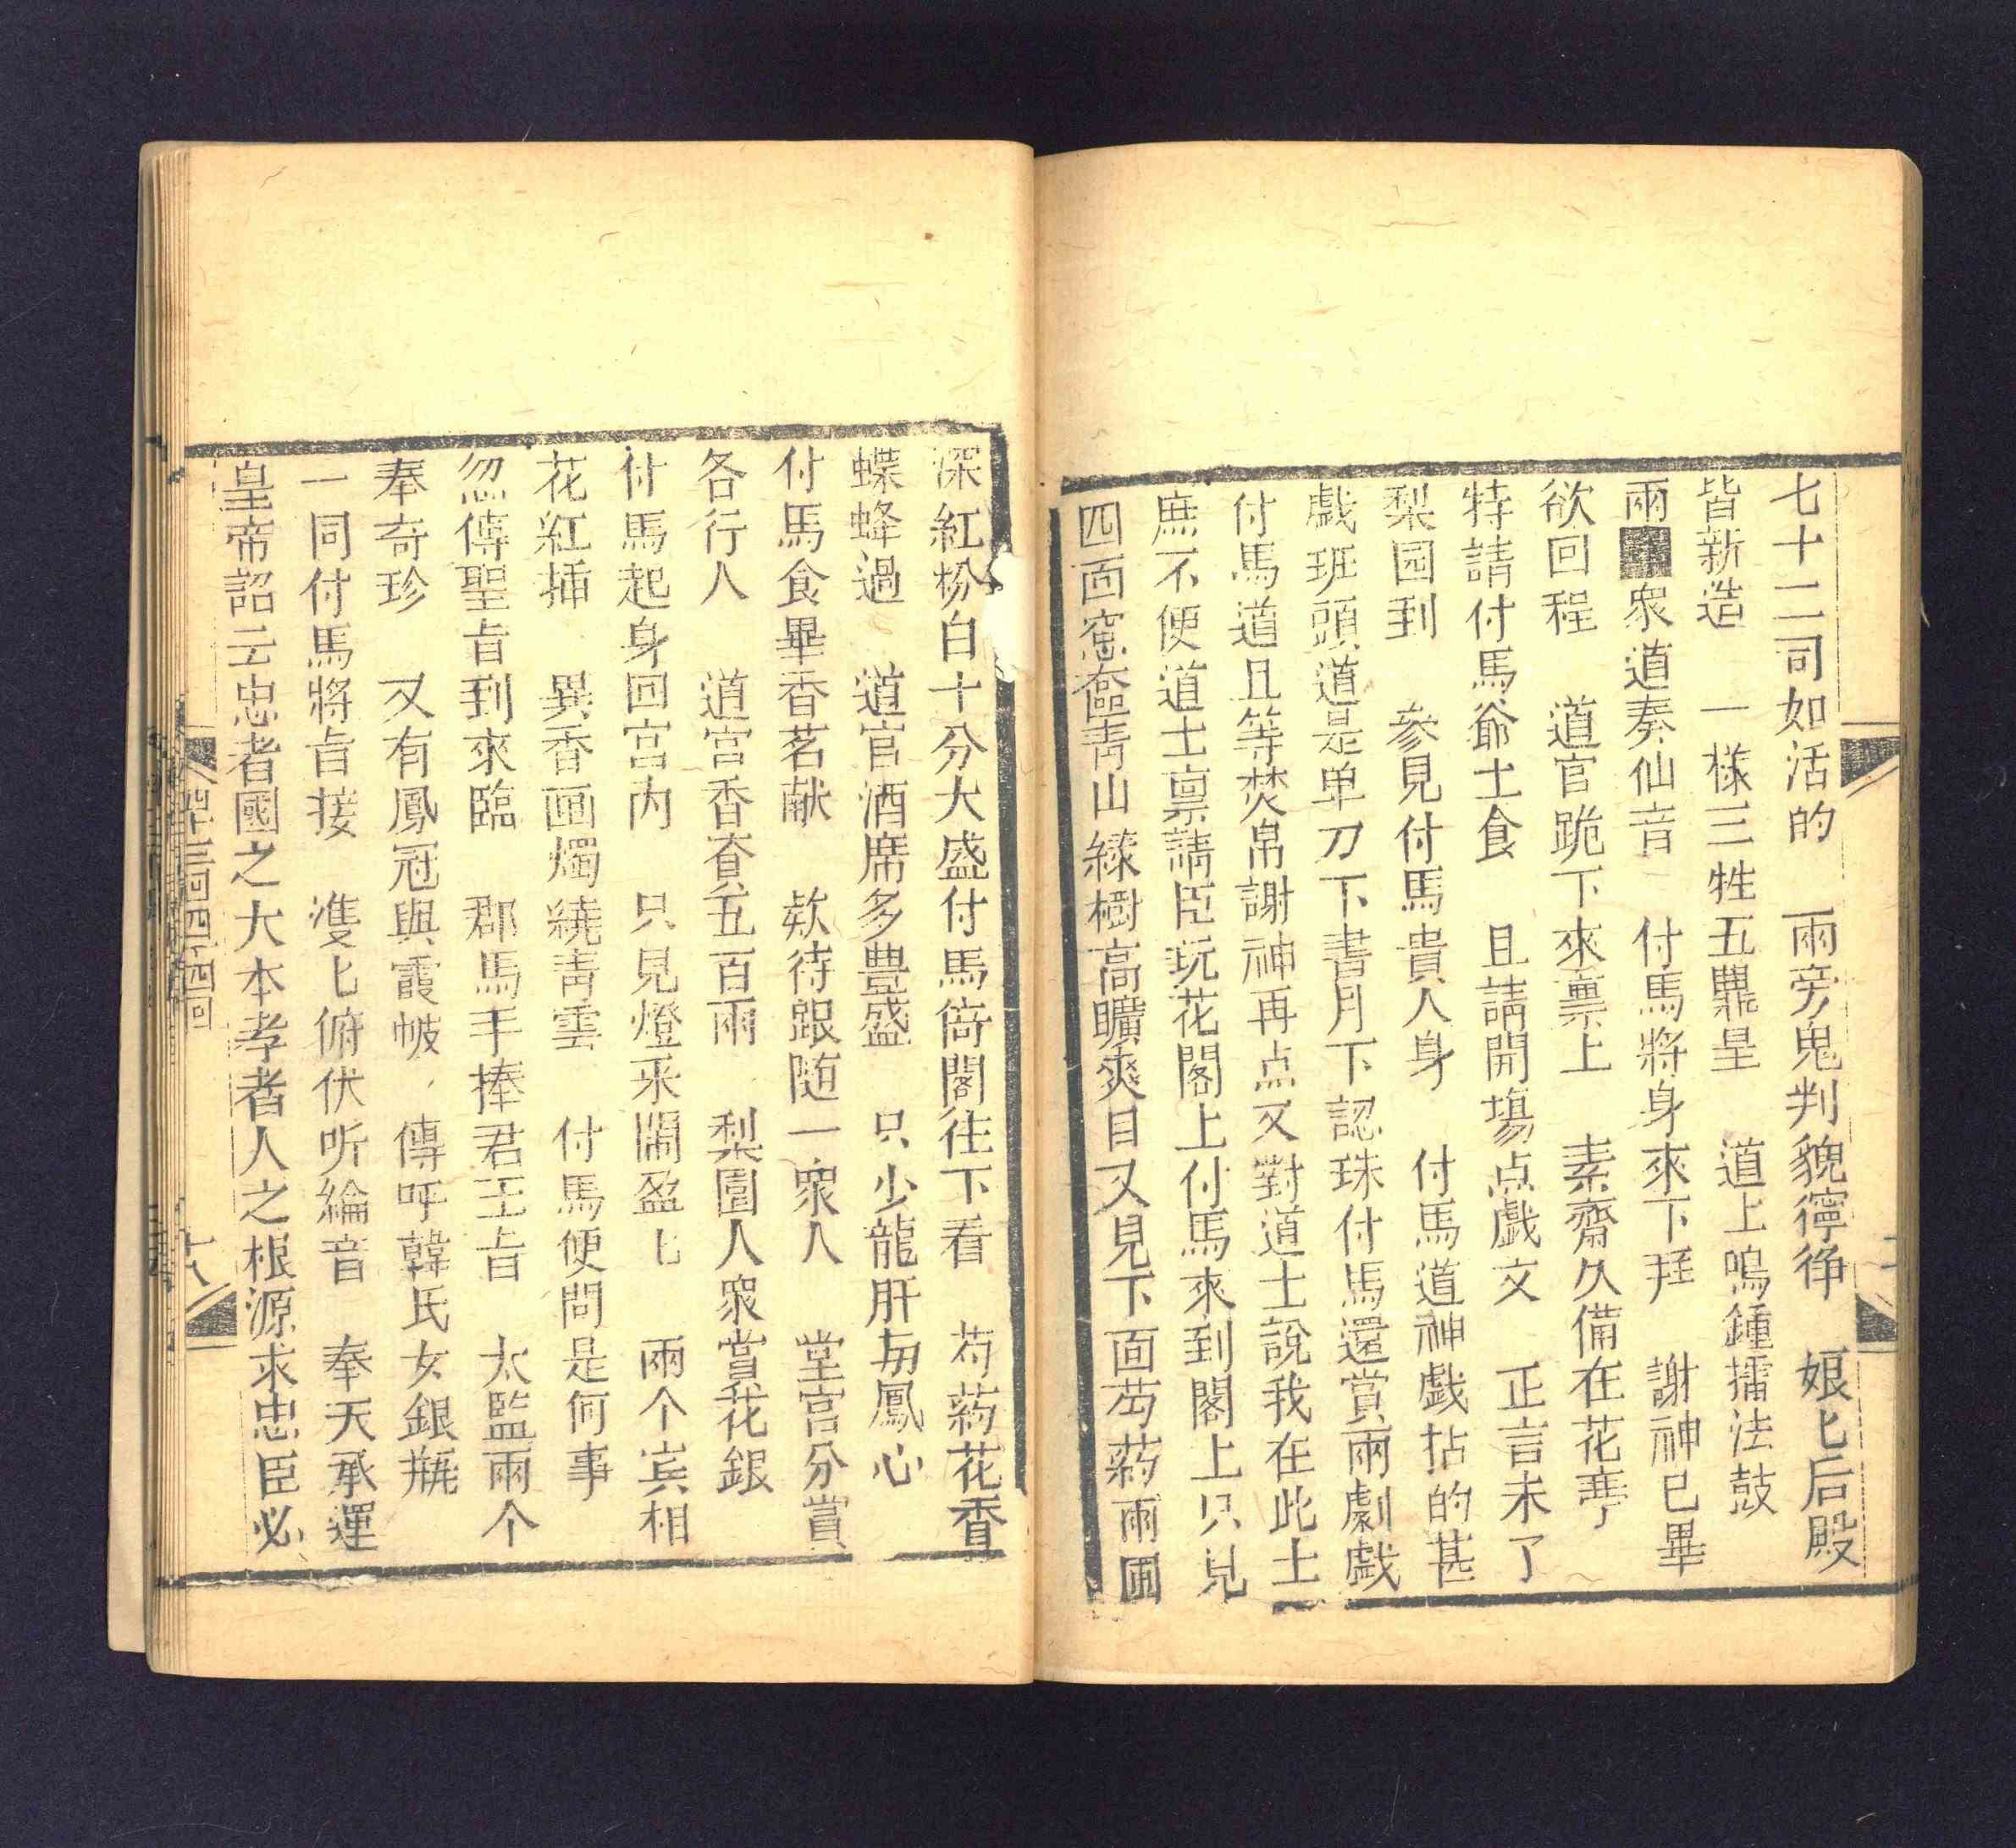 七十二司如活的　兩旁鬼判貌獰猙　娘匕后殿
皆新造　一樣三牲五鼎呈　道上鳴鍾擂法鼓
兩　衆道奏仙音　付馬將身來下拜　謝神已畢
欲回程　道官跪下來禀上　素齋久備在花亭
特請付馬爺上食　且請開場点戲文　正言未了
梨园到　參見付馬貴人身　付馬道神戲拈的甚
戲班頭道是单刀下書月下認珠付馬還賞兩劇戲
付馬道且等焚帛謝神再点又對道士說我在此土
庶不便道士禀請臣玩花閣上付馬來到閣上只見
四面窓盡青山綠樹高曠爽目又見下面芍葯兩圃
深紅粉白十分大盛付馬倚閣往下看　芍葯花香
蝶蜂過　道官酒席多豊盛　只少龍肝与鳳心
付馬食畢香茗献　欵待跟随一衆人　堂官分賞
各行人　道宫香資五百兩　梨園人衆賞花銀
付馬起身回宫内　只見燈采閙盈匕　兩个宾相
花紅插　異香画燭繞青雲　付馬便問是何事
忽傳聖旨到來臨　郡馬手捧君王旨　太監兩个
奉奇珍　又有鳳冠與霞帔　傳呼韓氏女銀瓶
一同付馬將旨接　雙匕俯伏听綸音　奉天承運
皇帝詔云忠者國之大本孝者人之根源求忠臣必
四十四回
十八